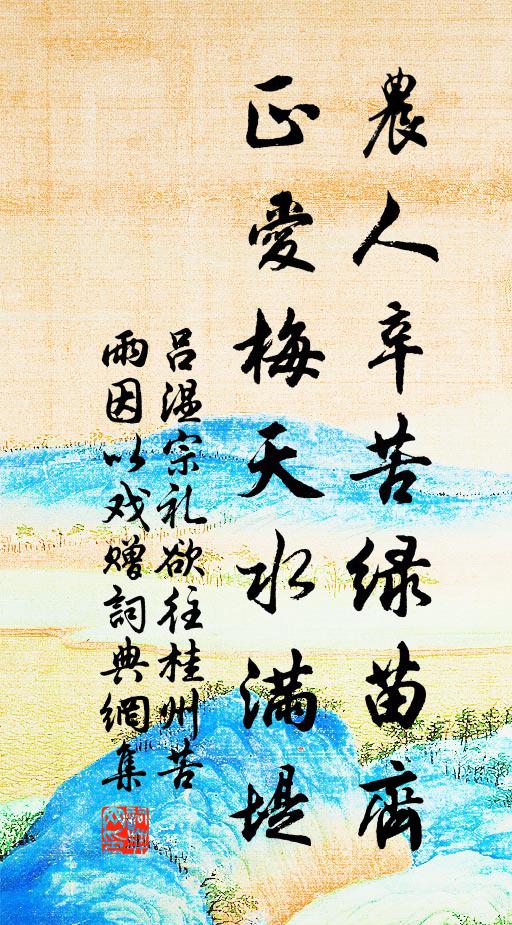 農人辛苦绿苗齊
正愛梅天水滿堤
吕温宗礼欲往桂州苦
雨因以戏赠詞典網集